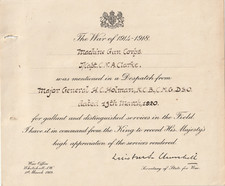 The War of 1914-1918.
Machine Gun Corps
C.R.A. Clarke.
was mentioned in a Despatch from
Major General H.C. Holman, K.C.B., C.M.G., D.S.O.
dated 15th March, 1920.
for gallant and distinguished services in the Field
I have it in command from the King to record His Majesty's
high appreciation of the services rendered
Winston S. Churchill
War Office
Whitehall, S.W.
Secretary of State for War
1st March 1919.